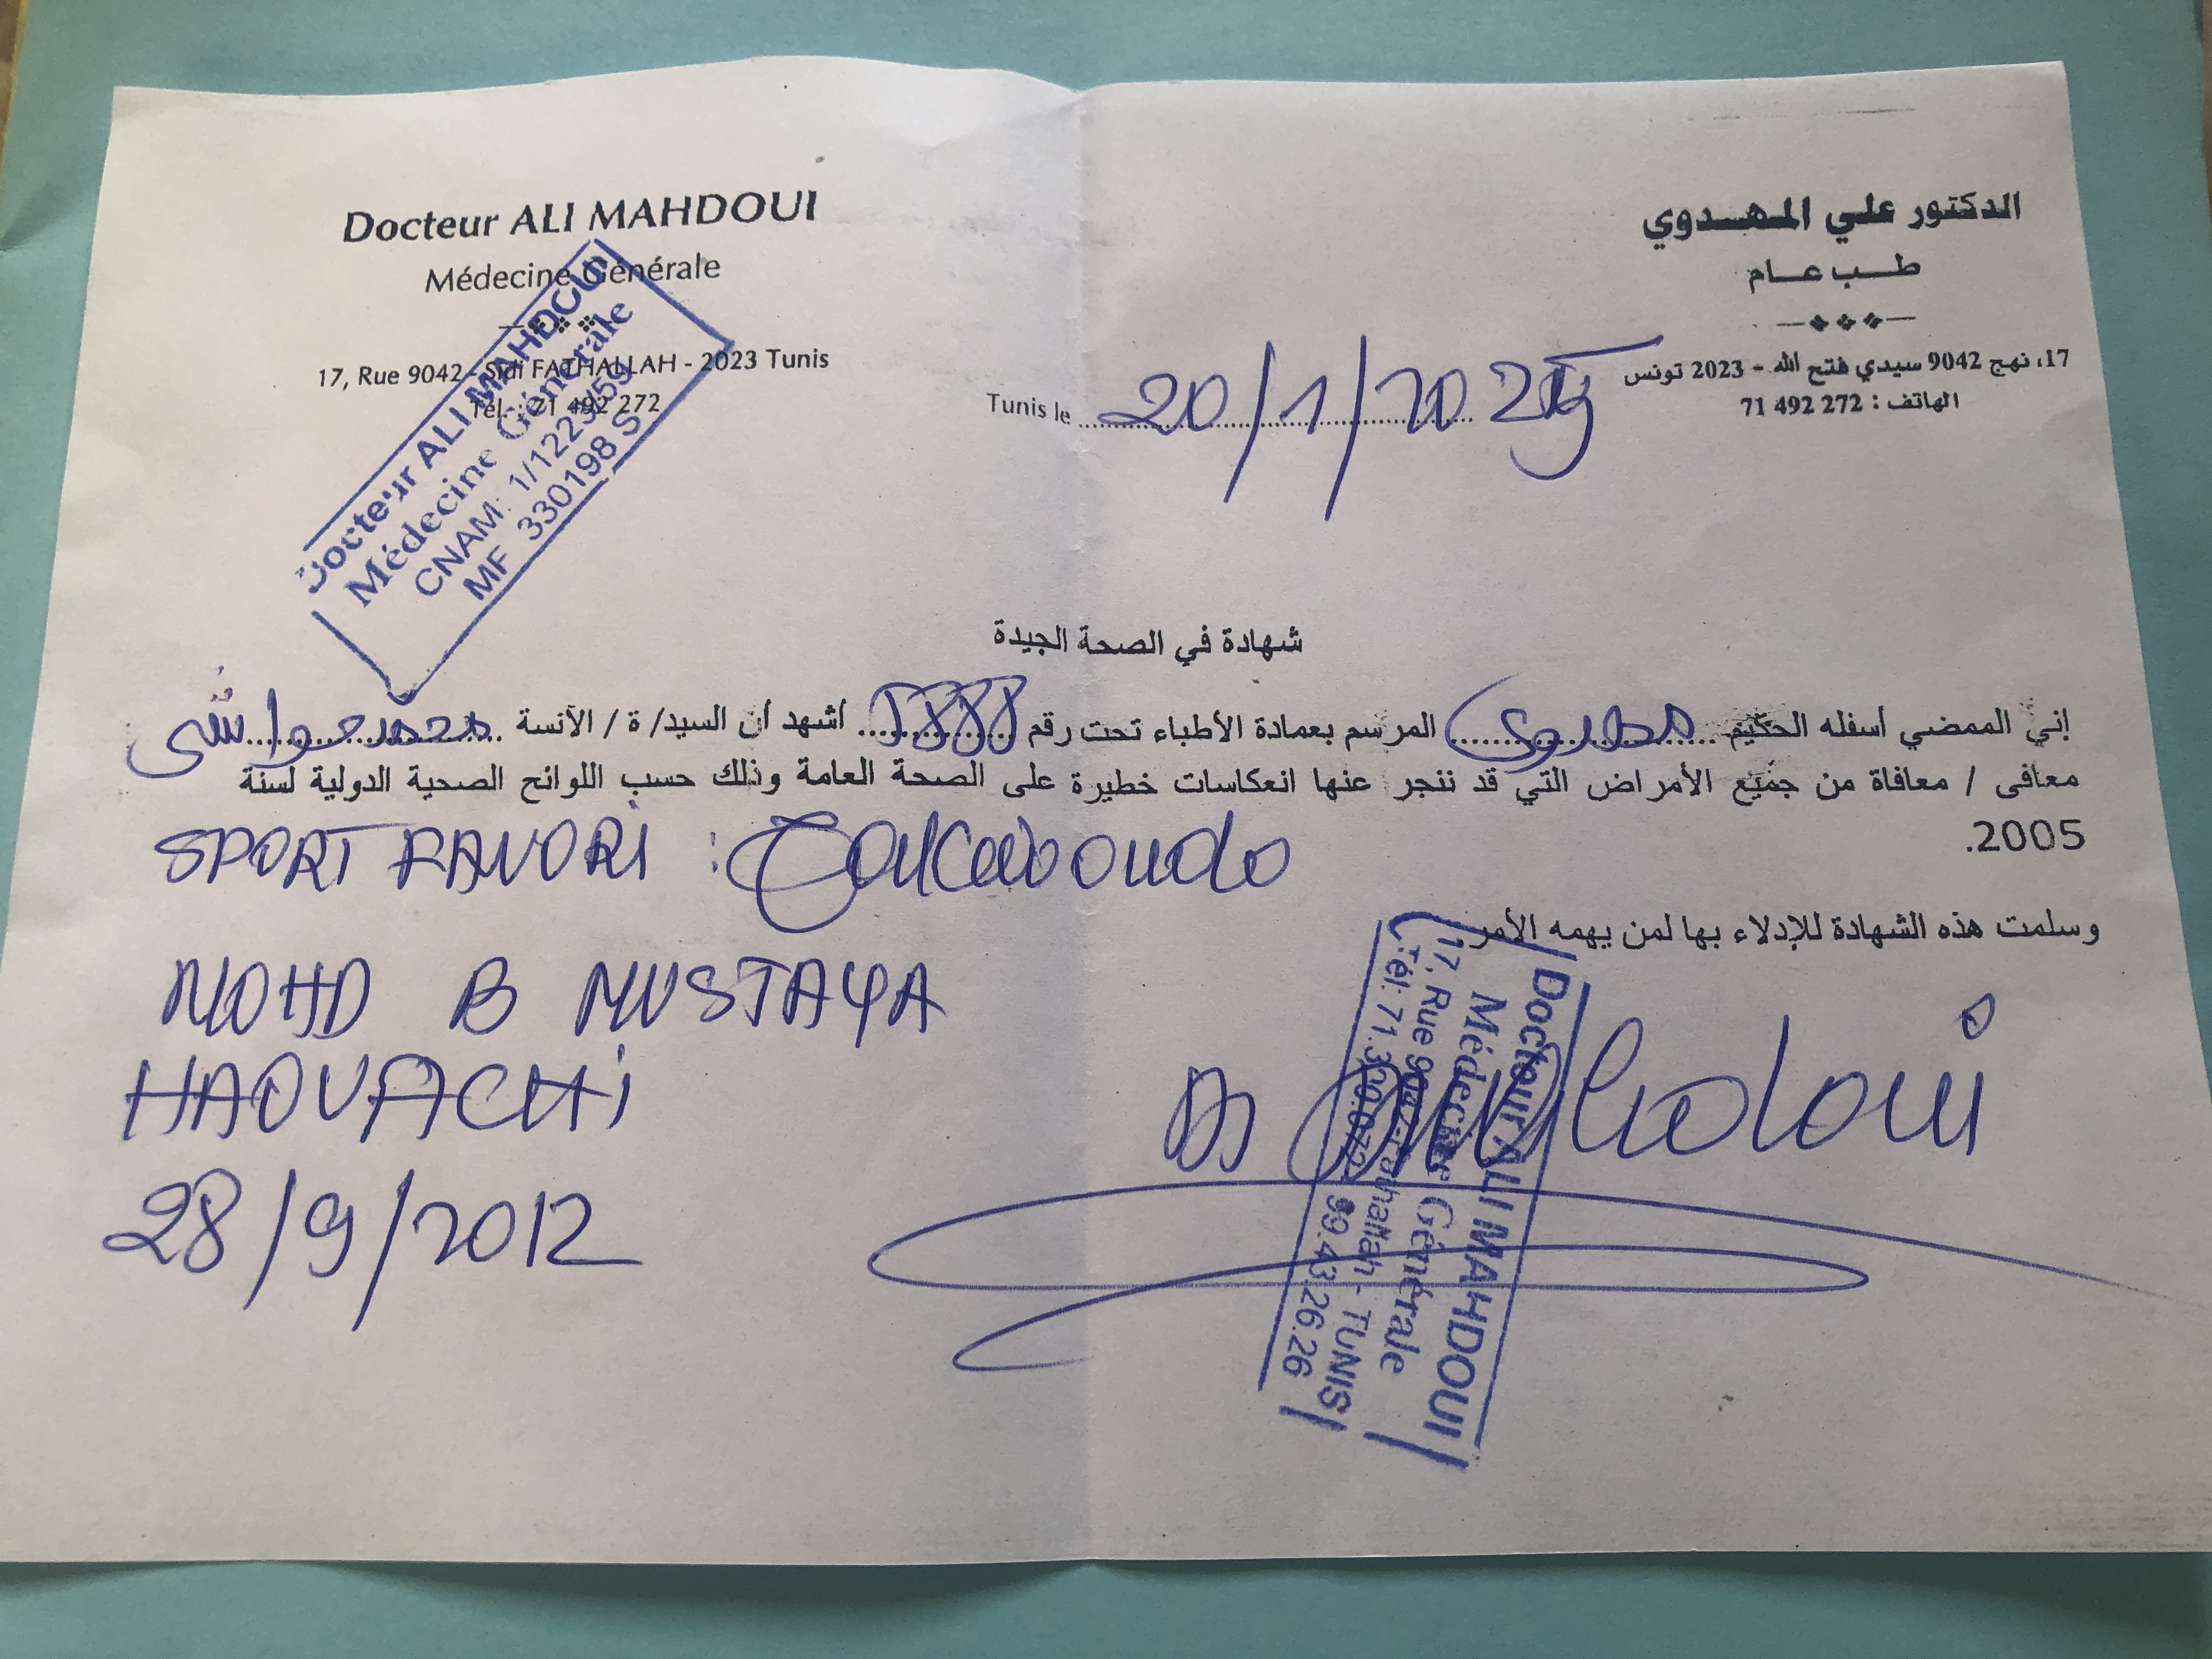 Docteur ALI MAHDOUI
Médecine Générale
17, Rue 9042 - Sidi FATHALLAH - 2023 Tunis
Tél. : 71 492 272
الدكتور علي المهدوي
طب عام
17، نهج 9042 سيدي فتح الله - 2023 تونس
الهاتف : 272 492 71
Docteur ALI MAHDOUI
Médecine Générale
CNAM: 1/12239/59
MF 330198 S
Tunis le 20/1/2025
شهادة في الصحة الجيدة
إني الممضي أسفله الحكيم مهدوي المرسم بعمادة الأطباء تحت رقم أشهد أن السيد/ ة / الآنسة محمد حواشي
معافى / معافاة من جميع الأمراض التي قد ننجر عنها انعكاسات خطيرة على الصحة العامة وذلك حسب اللوائح الصحية الدولية لسنة
2005.
SPORT FAVORI :
وسلمت هذه الشهادة للإدلاء بها لمن يهمه الأمر
MOHD B MUSTAPHA
HAOUACHI
28/9/2012
Dr Mahdoui
Docteur ALI MAHDOUI
Médecine Générale
17, Rue 9042-Fathallah - TUNIS
Tél: 71.390.072 99.43.26.26